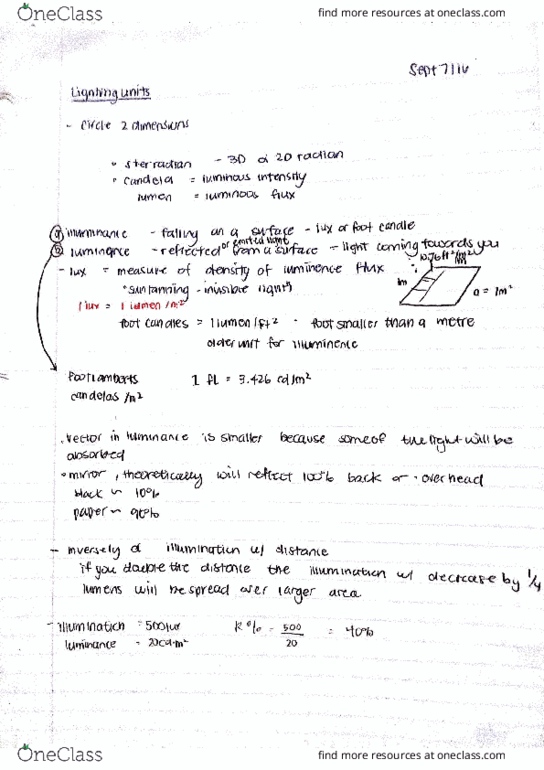 OneClass
find more resources at oneclass.com
Sept 7/16
Lighting units
- circle 2 dimensions
• sterradian - 3D of 2D radian
• candela = luminous intensity
lumen = luminous flux
(a) illuminance - falling on a surface - lux or foot candle
or emitted light
(b) luminance - reflected from a surface - light coming towards you
10.76 ft²/m²
- lux = measure of density of luminence flux
1m
a = 1m²
*suntanning - invisible light
1 lux = 1 lumen/m²
foot candles = 1 lumen/ft² - foot smaller than a metre
older unit for illuminence
Footlamberts 1 fL = 3.426 cd/m²
candelas/m²
. vector in luminance is smaller because some of the light will be
absorbed
• mirror, theoretically will reflect 100% back or overhead
black ~ 10%
paper ~ 90%
- inversely illumination w/ distance
if you double the distance the illumination w/ decrease by 1/4
lumens will be spread over larger area
- illumination = 500lux R% = 500/20 = 40%
luminance = 20cd·m²
OneClass
find more resources at oneclass.com